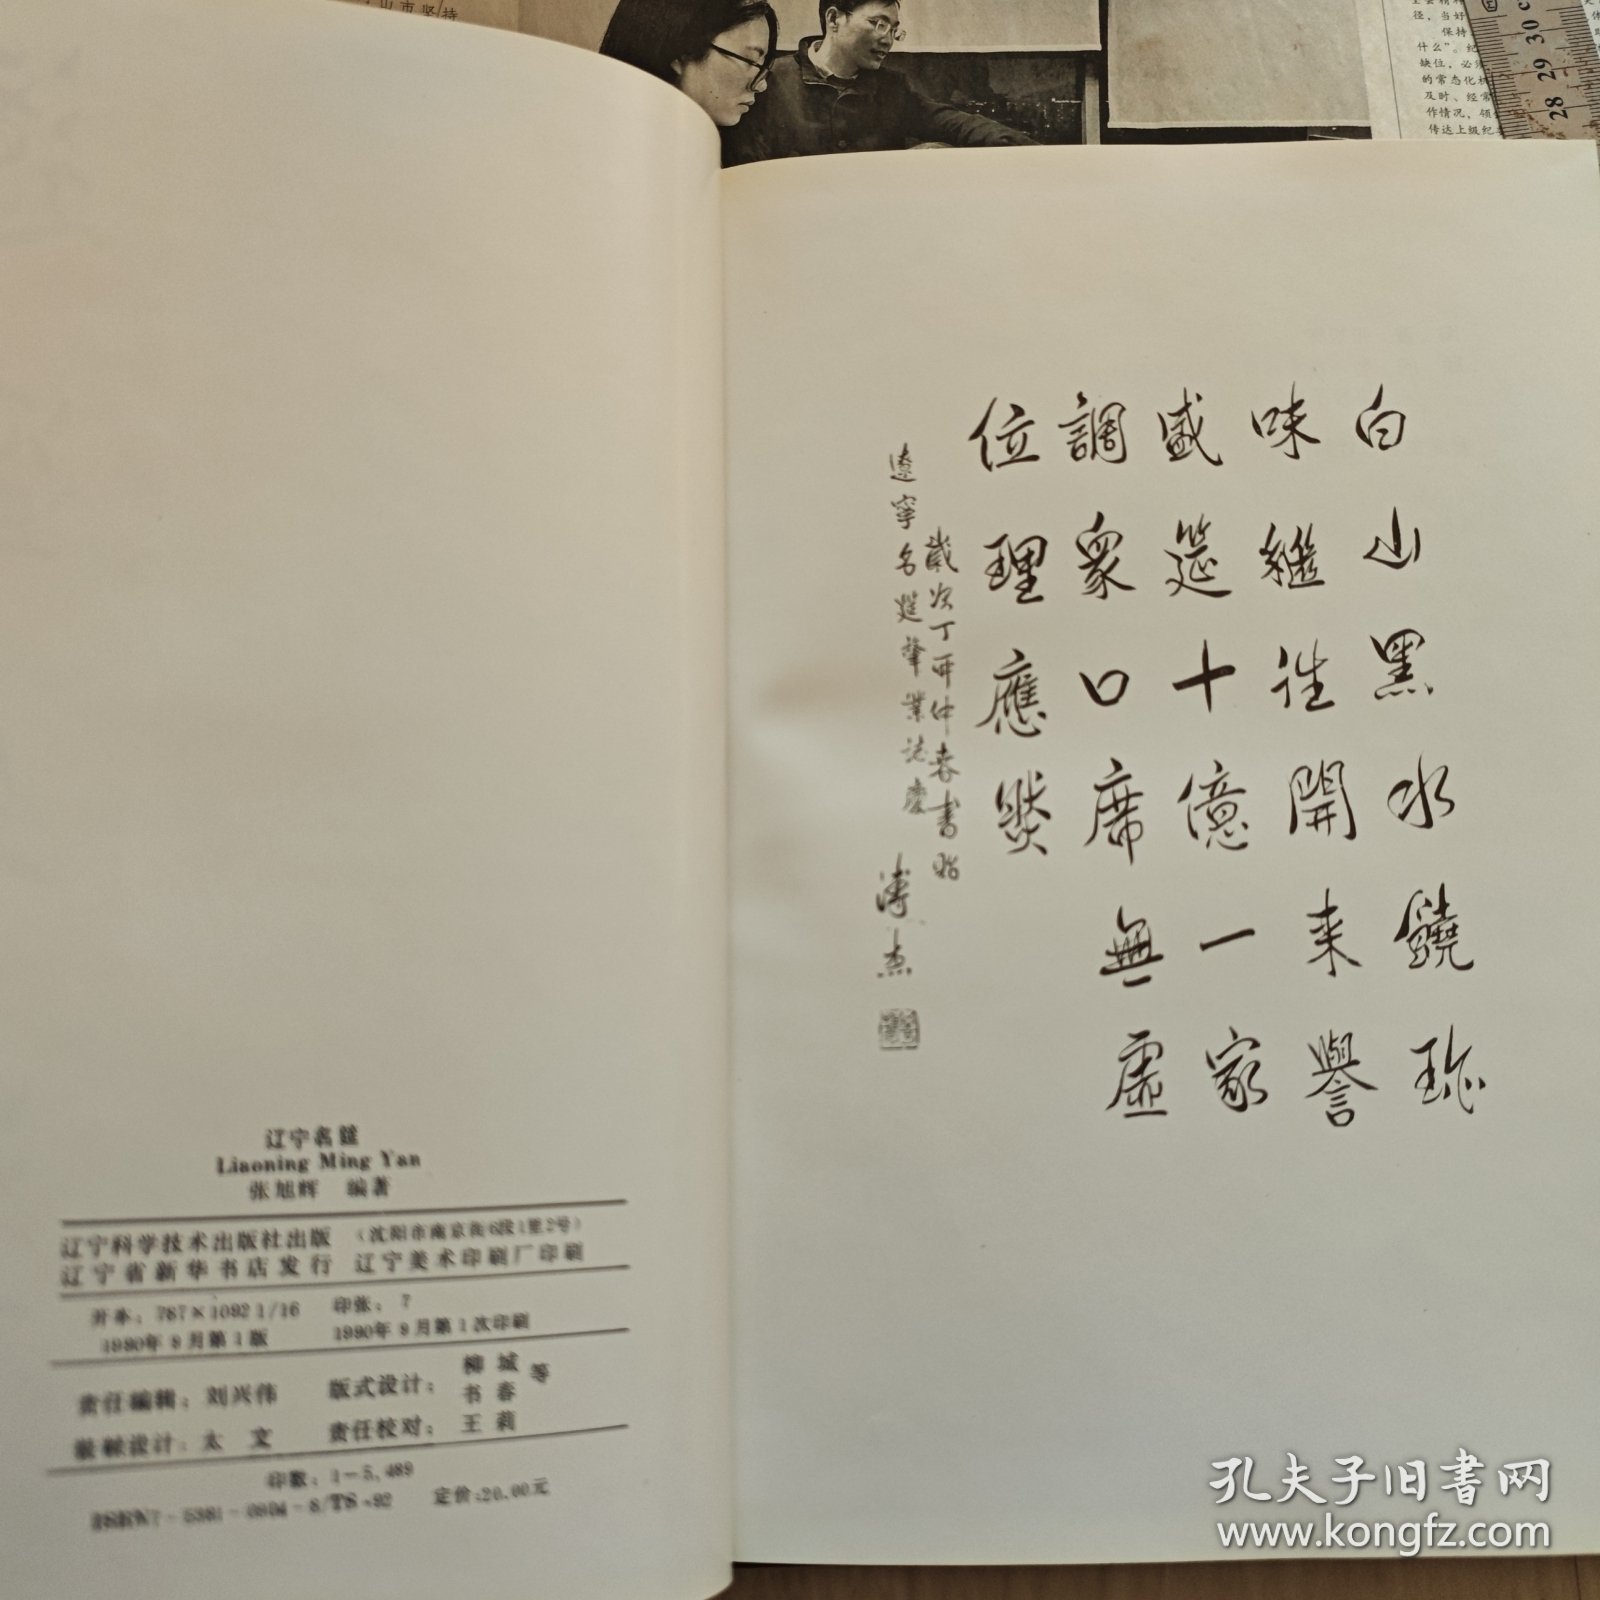 山市坚持
径，当好
保持
什么”。纪
缺位，必须
的常态化
及时、经常
作情况，领
传达上级纪
28 29 30
辽宁名筵
Liaoning Ming Yan
张旭辉 编著
辽宁科学技术出版社出版 （沈阳市南京街6段1里2号）
辽宁省新华书店发行 辽宁美术印刷厂印刷
开本：787×1092 1/16 印张：7
1990年9月第1版 1990年9月第1次印刷
责任编辑：刘兴伟 版式设计：柳城 书春 等
封面设计：太文 责任校对：王莉
印数：1—5,489
ISBN7-5381-0804-8/TS·92 定价：20.00元
白山黑水饶珍
味继往開来譽
盛筵十億一家
調眾口席無虛
位理應然
歲次丁卯仲春書貽
遼寧名筵肇業誌慶
溥杰
孔夫子旧书网
www.kongfz.com